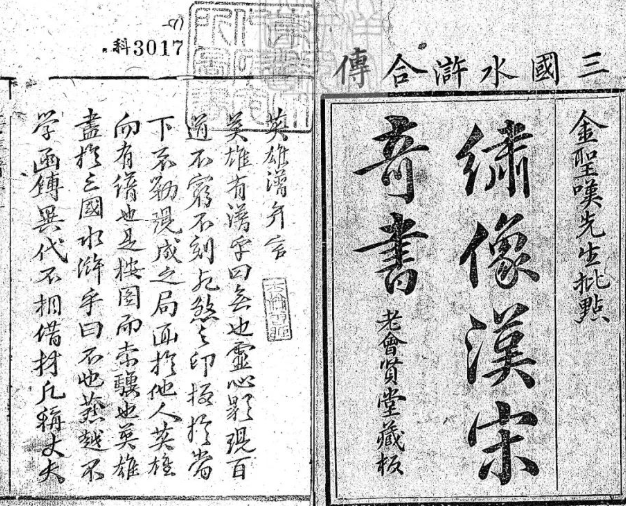 三國水滸合傳
金聖嘆先生批點
繡像漢宋
奇書
老會賢堂藏板
科3017
英雄譜弁言
英雄有譜乎曰無也靈心影現百
道不窮不刻死煞之印板於當
下不勒現成之局面於他人英雄
而有譜也是按圖而索驥也英雄
盡於三國水滸乎曰不也燕越不
學函鎛異代不相借材凡稱丈夫